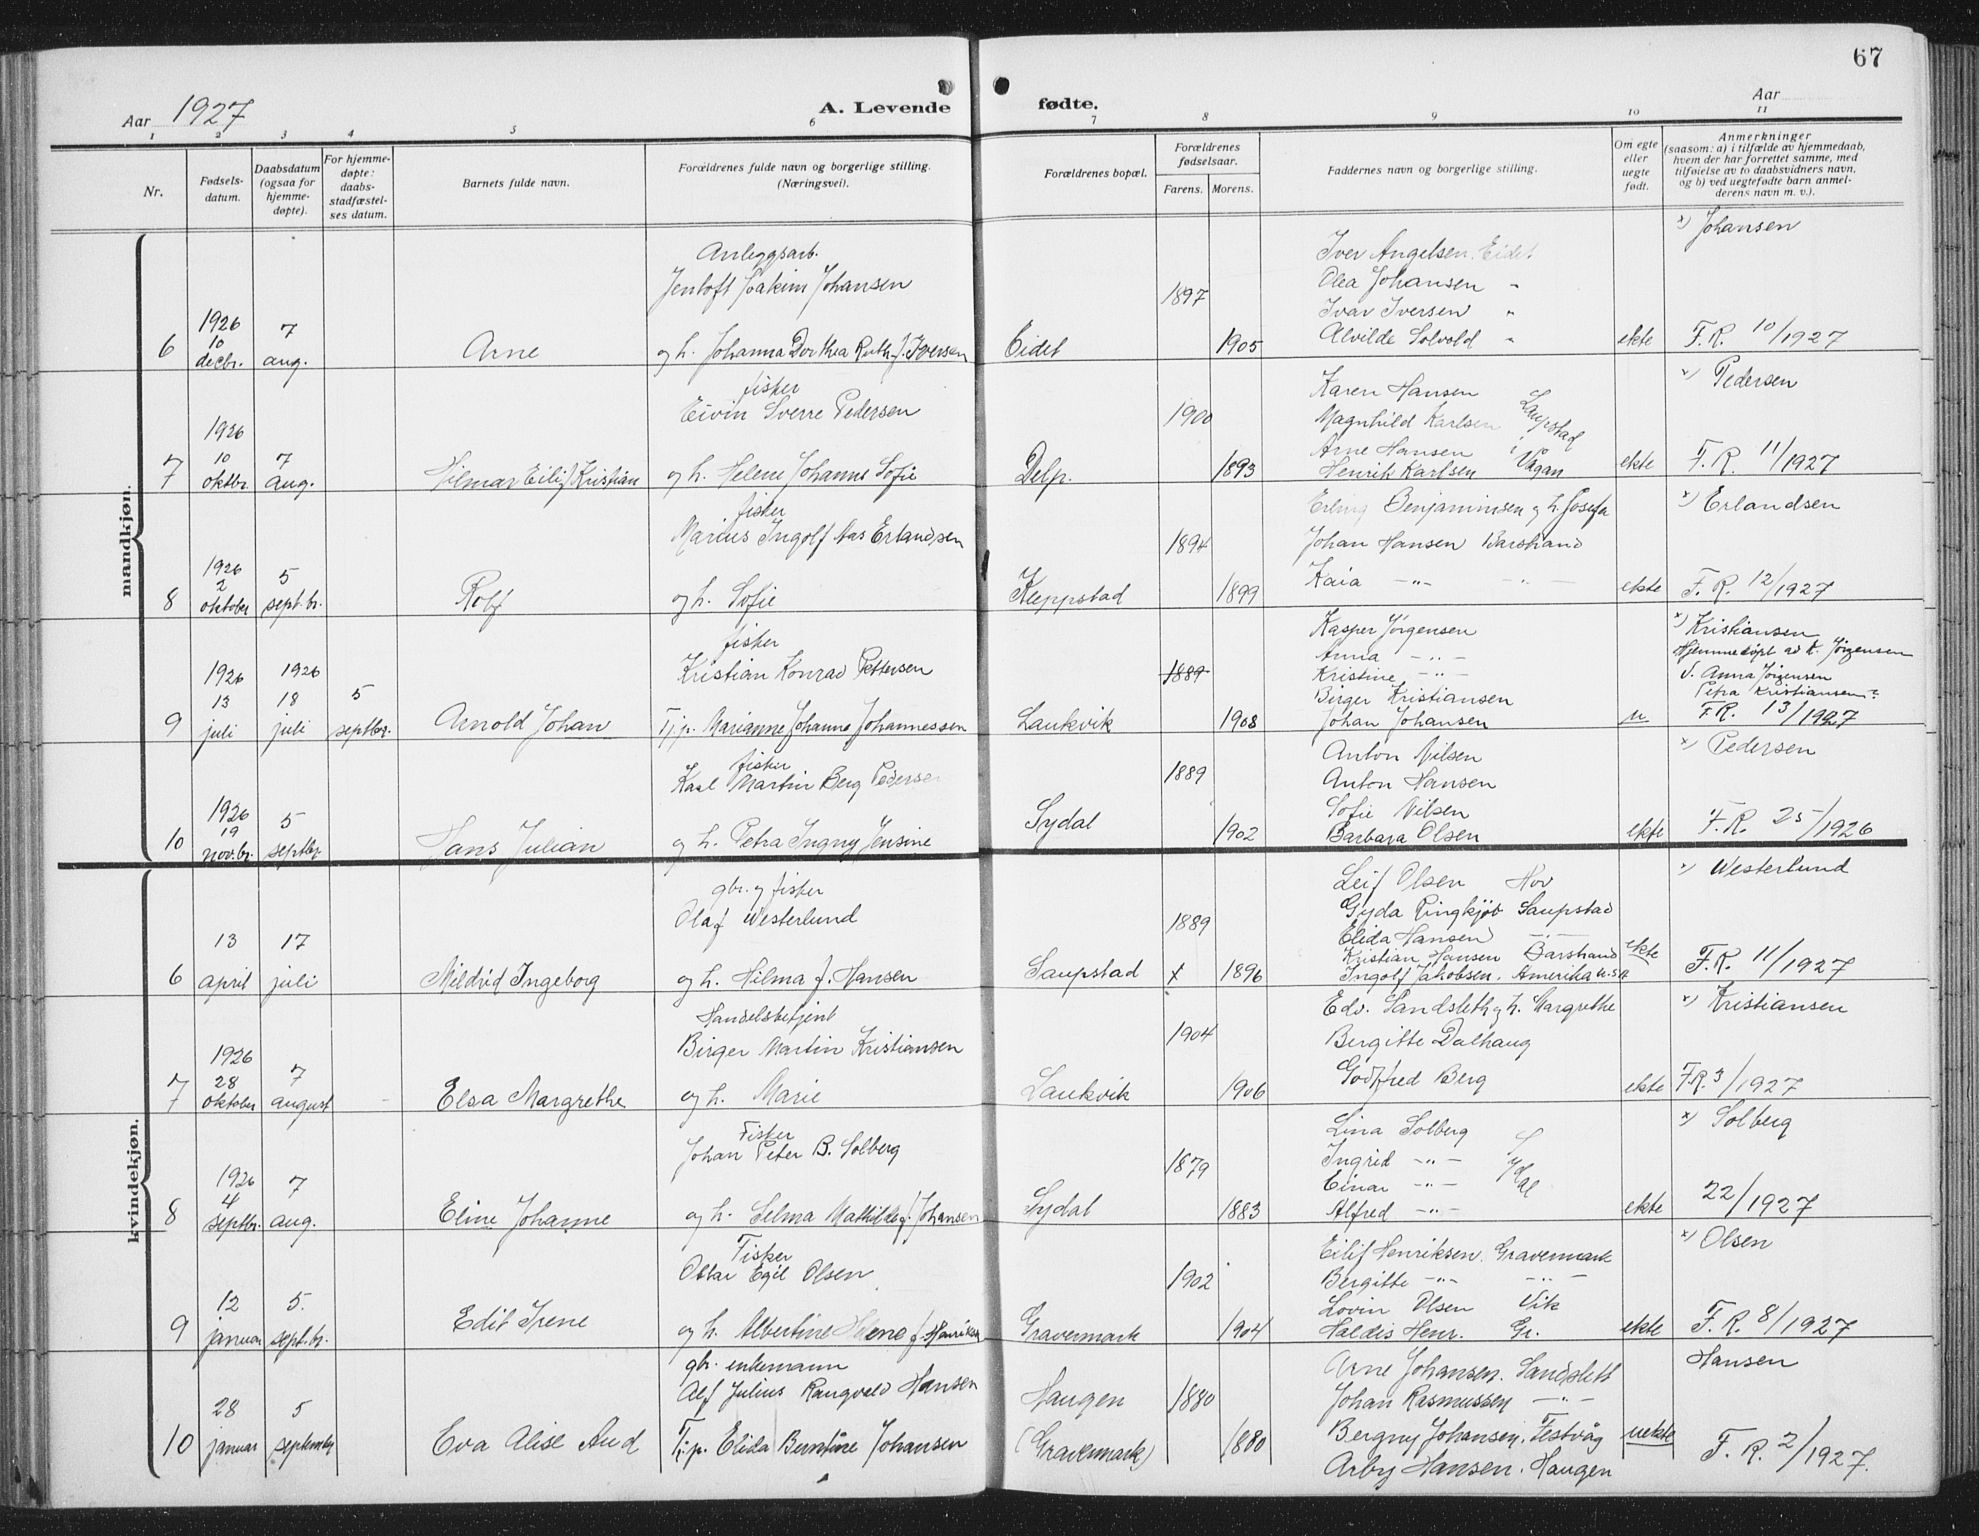 67
Aar 1927
A. Levende fødte.
Aar
1 2 3 4 5 6 7 8 9 10 11
Nr.
Fødsels-
datum.
Daabsdatum
(ogsaa for
hjemme-
døpte).
For hjemme-
døpte:
daabs-
stadfæstel-
ses datum.
Barnets fulde navn.
Forældrenes fulde navn og borgerlige stilling.
(Næringsvei).
Forældrenes bopæl.
Forældrenes
fødselsaar.
Farens. Morens.
Faddernes navn og borgerlige stilling.
Om egte
eller
uegte
født.
Anmerkninger
(saasom: a) i tilfælde av hjemmedaab,
hvem der har forrettet samme, med
tilføielse av to daabsvidners navn,
og b) ved uegtefødte barn anmel-
derens navn m. v.).
mandkjøn.
6
1926
10
decbr.
7
aug.
Arne
Anleggsarb.
Jentoft Joakim Johansen
og h. Johanna Dorthea Ruth f. Iversen
Eidet
1897
1905
Iver Angelsen Eidet
Olea Johansen "
Ivar Iversen "
Alvilde Solvold "
ekte
x) Johansen
F.R. 10/1927
7
1926
10
oktbr.
7
aug.
Hilmar Eilif Kristian
fisker
Eivin Sverre Pedersen
og h. Helene Johanne Sofie
Delp.
1900
1893
Karen Hansen
Magnhild Karlsen Laupstad
Arne Hansen i
Henrik Karlsen Vågan
ekte
x) Pedersen
F.R. 11/1927
8
1926
2
oktober
5
septbr.
Rolf
fisker
Marius Ingolf Aas Erlandsen
og h. Sofie
Kleppstad
1894
1899
Erling Benjaminsen og h. Josefa
Johan Hansen Barstrand
Kaia -"- -"-
ekte
x) Erlandsen
F.R. 12/1927
9
1926
13
juli
1926
18
juli
5
septbr.
Arnold Johan
fisker
Kristian Konrad Pettersen
Tj.p. Marianne Johanne Johannessen
Laukvik
1889
1908
Kasper Jørgensen
Anna -"-
Kristine -"-
Birger Kristiansen
Johan Johansen
u
x) Kristiansen
Hjemmedøpt av K. Jørgensen
v. Anna Jørgensen
Petra Kristiansen
F.R. 13/1927
10
1926
19
nov.br.
5
septbr.
Hans Julian
fisker
Karl Martin Berg Pedersen
og h. Petra Ingny Jensine
Sydal
1889
1902
Anton Nilsen
Anton Hansen
Sofie Nilsen
Barbara Olsen
ekte
x) Pedersen
F.R. 25/1926
kvindekjøn.
6
13
april
17
juli
Mildrid Ingeborg
gbr. og fisker
Olaf Westerlund
og h. Hilma f. Hansen
Saupstad
1889
x 1896
Leif Olsen Hov
Gyda Ringkjøb Saupstad
Elida Hansen -"-
Kristian Hansen Barstrand
Ingolf Jakobsen. Amerika U.S.A
ekte
x) Westerlund
F.R. 11/1927
7
1926
28
oktober
7
august
Elsa Margrethe
Handelsbetjent
Birger Martin Kristiansen
og h. Marie
Laukvik
1904
1906
Edv. Sandsleth og h. Margrethe
Bergitte Dalhaug
Godfred Berg
ekte
x) Kristiansen
F.R. 3/1927
8
1926
4
septbr.
7
aug.
Eline Johanne
Fisker
Johan Peter B. Solberg
og h. Selma Mathilde f. Johansen
Sydal
1879
1883
Lina Solberg
Ingrid -"- Sydal
Einar -"-
Alfred -"-
ekte
x) Solberg
22/1927
9
12
januar
5.
sept.br.
Edit Irene
Fisker
Ottar Egil Olsen
og h. Albertine Helene f. Henriksen
Gravermark
1902
1904
Eilif Henriksen. Gravermark
Bergitte -"- -"-
Lovin Olsen Vik
Haldis Henr. Gr.
ekte
x) Olsen
F.R. 8/1927
10
28
januar
5
septembr
Eva Alise Aud
gbr. enkemann
Alf Julius Rangvald Hansen
Tj.p. Elida Berntine Johansen
Haugen
(Gravermark)
1880
1880
Arne Johansen. Sandslett
Johan Rasmussen -"-
Bergny Johansen. Festvåg
Arby Hansen. Haugen
uekte
Hansen
F.R. 2/1927.